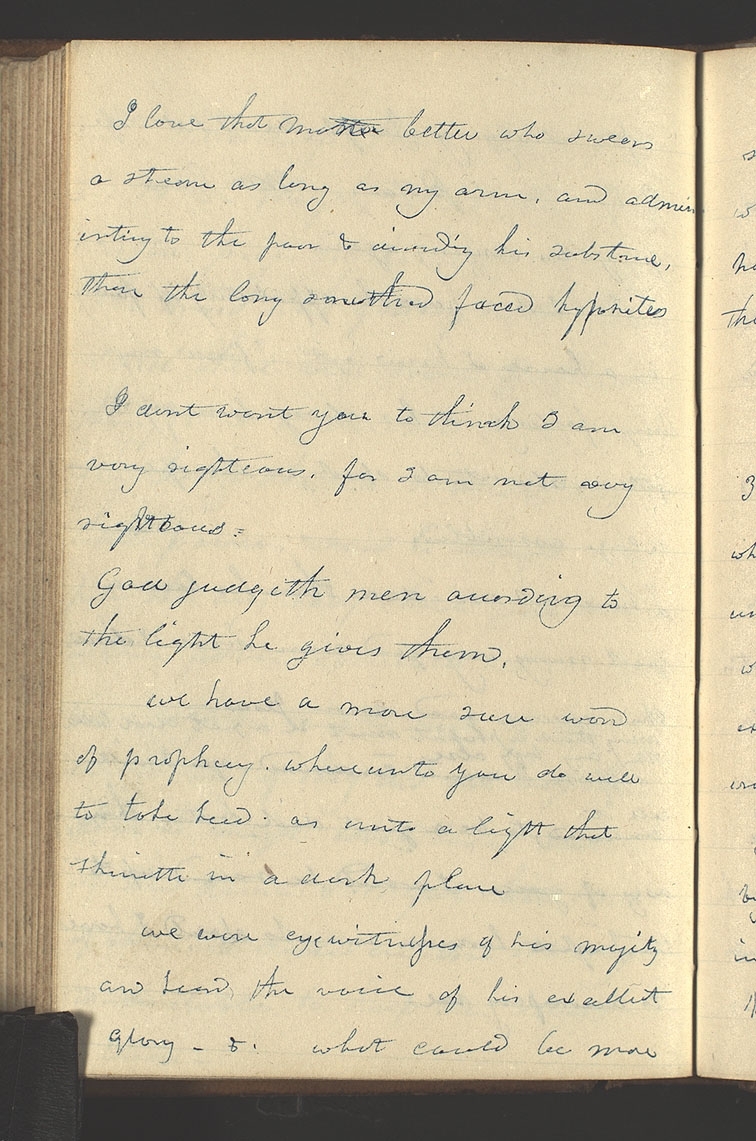 I love that man better who swears
a stream as long as my arm, and admin
isteng to the poor & dividing his substance,
than the long smoothed faced hypocrites
I dont want you to think I am
very righteous, for I am not very
righteous=
God judgeth men according to
the light he gives them.
we have a more sure word
of prophecy. whereunto you do well
to take heed. as unto a light that
shineth in a dark place
we were eyewitnesses of his majesty
and heard the voice of his excellent
glory - &. what could be more